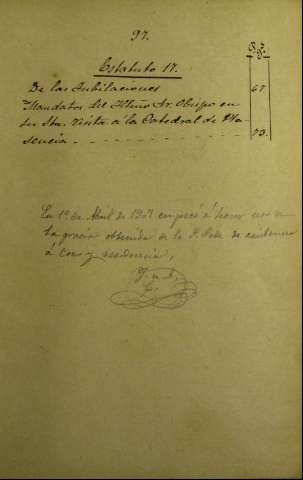 97.
Estatuto 17.
De las Jubilaciones 67
Mandatos del Iltmo Sr. Obispo en
su Sta. Visita á la Catedral de Pla-
sencia 73.
En 1º de Abril de 1907 empecé á hacer uso de
la gracia obtenida de la S. Sede de asistencia
á Coro y residencia,